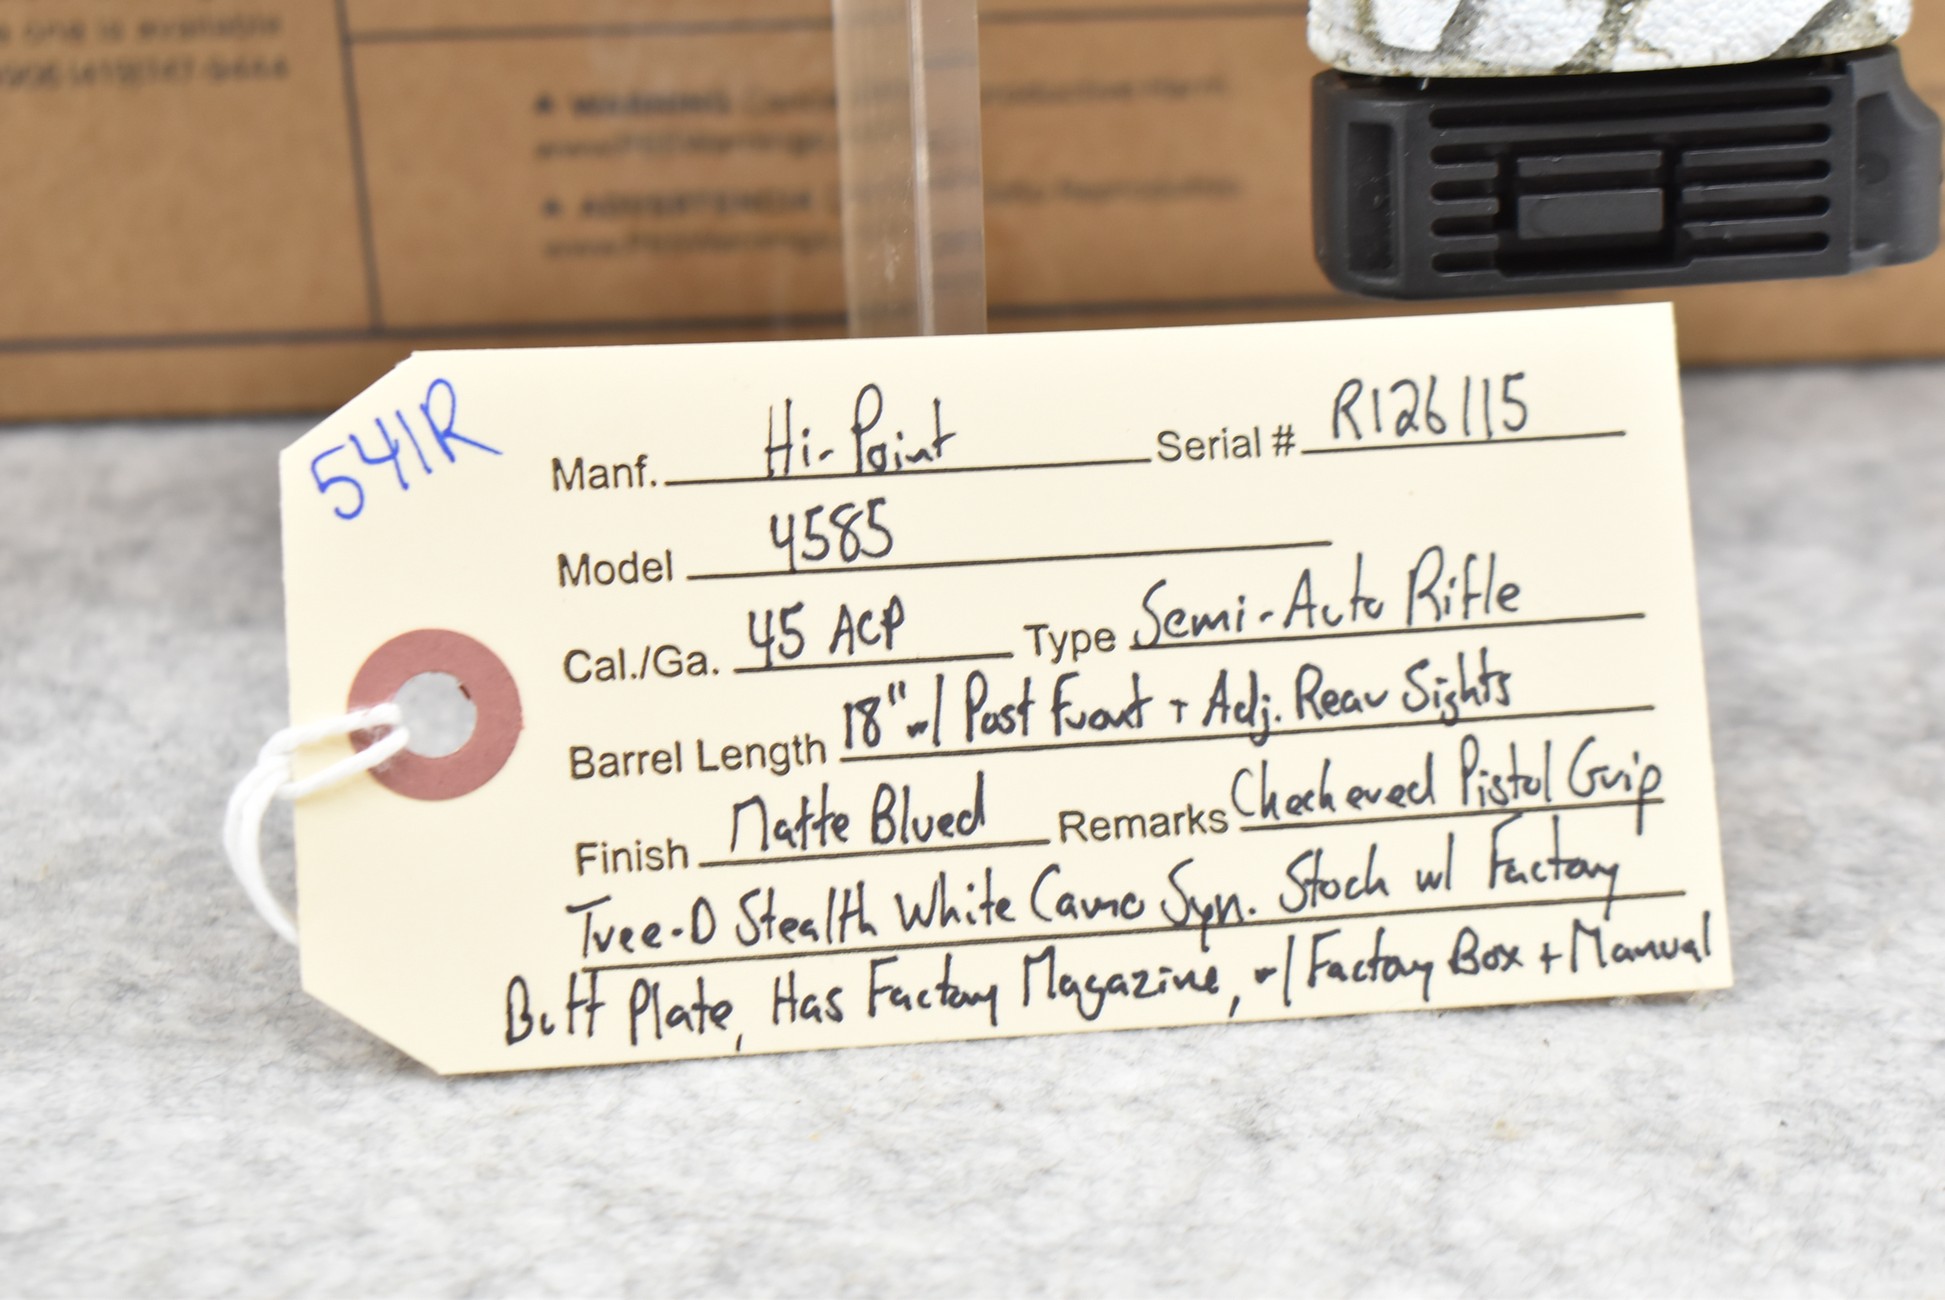 one is available
WARNING
ADVERTENCIA
541R
Manf. Hi-Point Serial # R126115
Model 4585
Cal./Ga. 45 ACP Type Semi-Auto Rifle
Barrel Length 18" w/ Post Front + Adj. Rear Sights
Finish Matte Blued Remarks Checkered Pistol Grip
Tree-D Stealth White Camo Syn. Stock w/ Factory
Butt Plate, Has Factory Magazine, w/ Factory Box + Manual